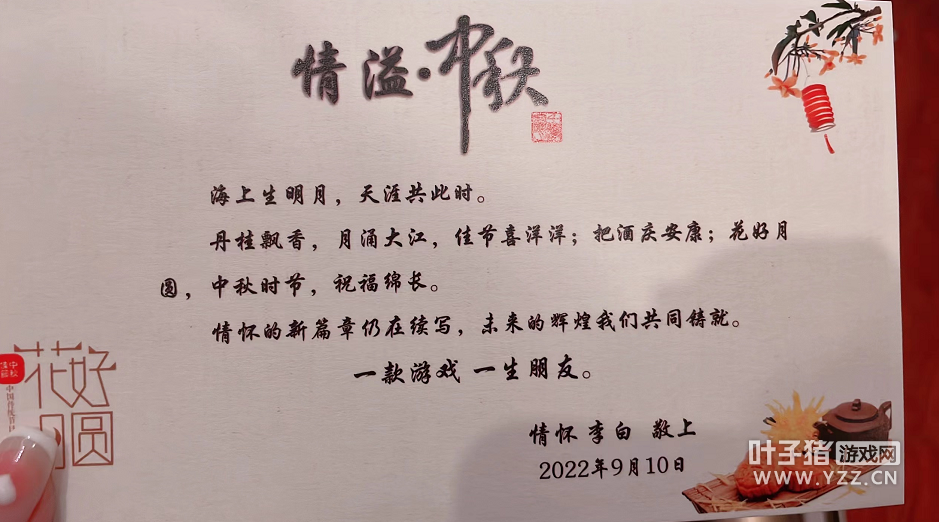 情溢·中秋
海上生明月，天涯共此时。
丹桂飘香，月涌大江，佳节喜洋洋；把酒庆安康；花好月
圆，中秋时节，祝福绵长。
情怀的新篇章仍在续写，未来的辉煌我们共同铸就。
一款游戏 一生朋友。
情怀 李白 敬上
2022年9月10日
花好
月圆
中国传统节日
叶子猪游戏网
WWW.YZZ.CN